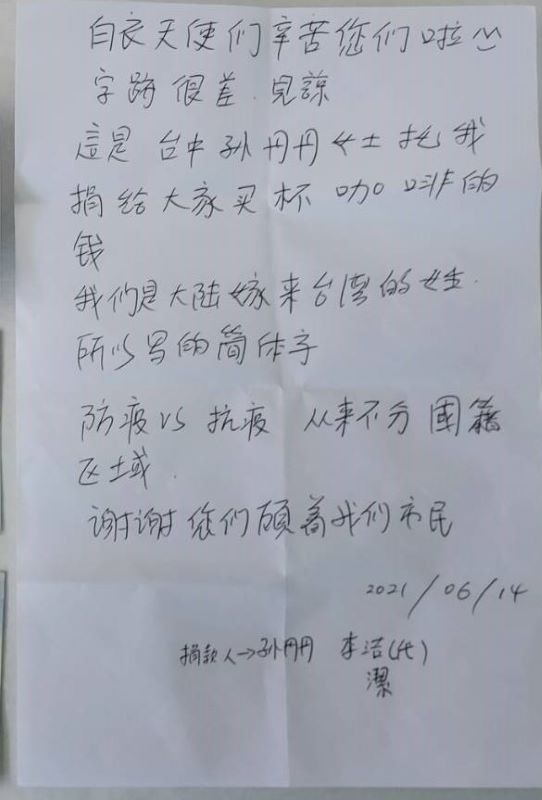 白衣天使们辛苦您们啦
字跡很差.見諒
這是 台中孙丹丹女士托我
捐给大家买杯咖啡的
钱
我们是大陆嫁来台湾的女生.
所以写的简体字
防疫VS抗疫 从来不分國籍
区域.
谢谢您们顾着我们市民
2021/06/14
捐款人→孙丹丹 李洁(代)
潔